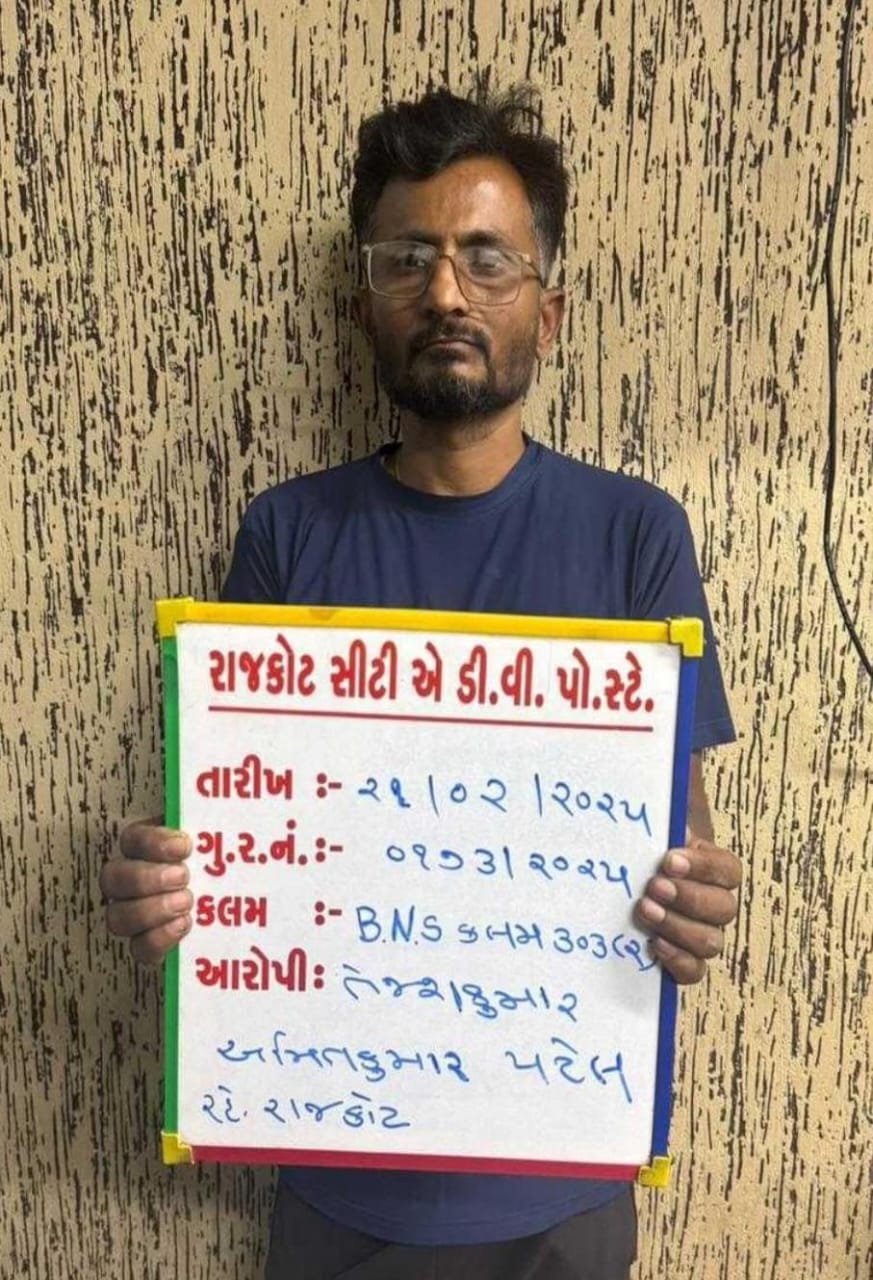 રાજકોટ સીટી એ ડી.વી. પો.સ્ટે.
તારીખ :- ૨૧/૦૨/૨૦૨૫
ગુ.ર.નં. :- ૦૧૭૩/૨૦૨૫
કલમ :- B.N.S કલમ ૩૦૩(૨)
આરોપી :
અમિતકુમાર પટેલ
રહે. રાજકોટ